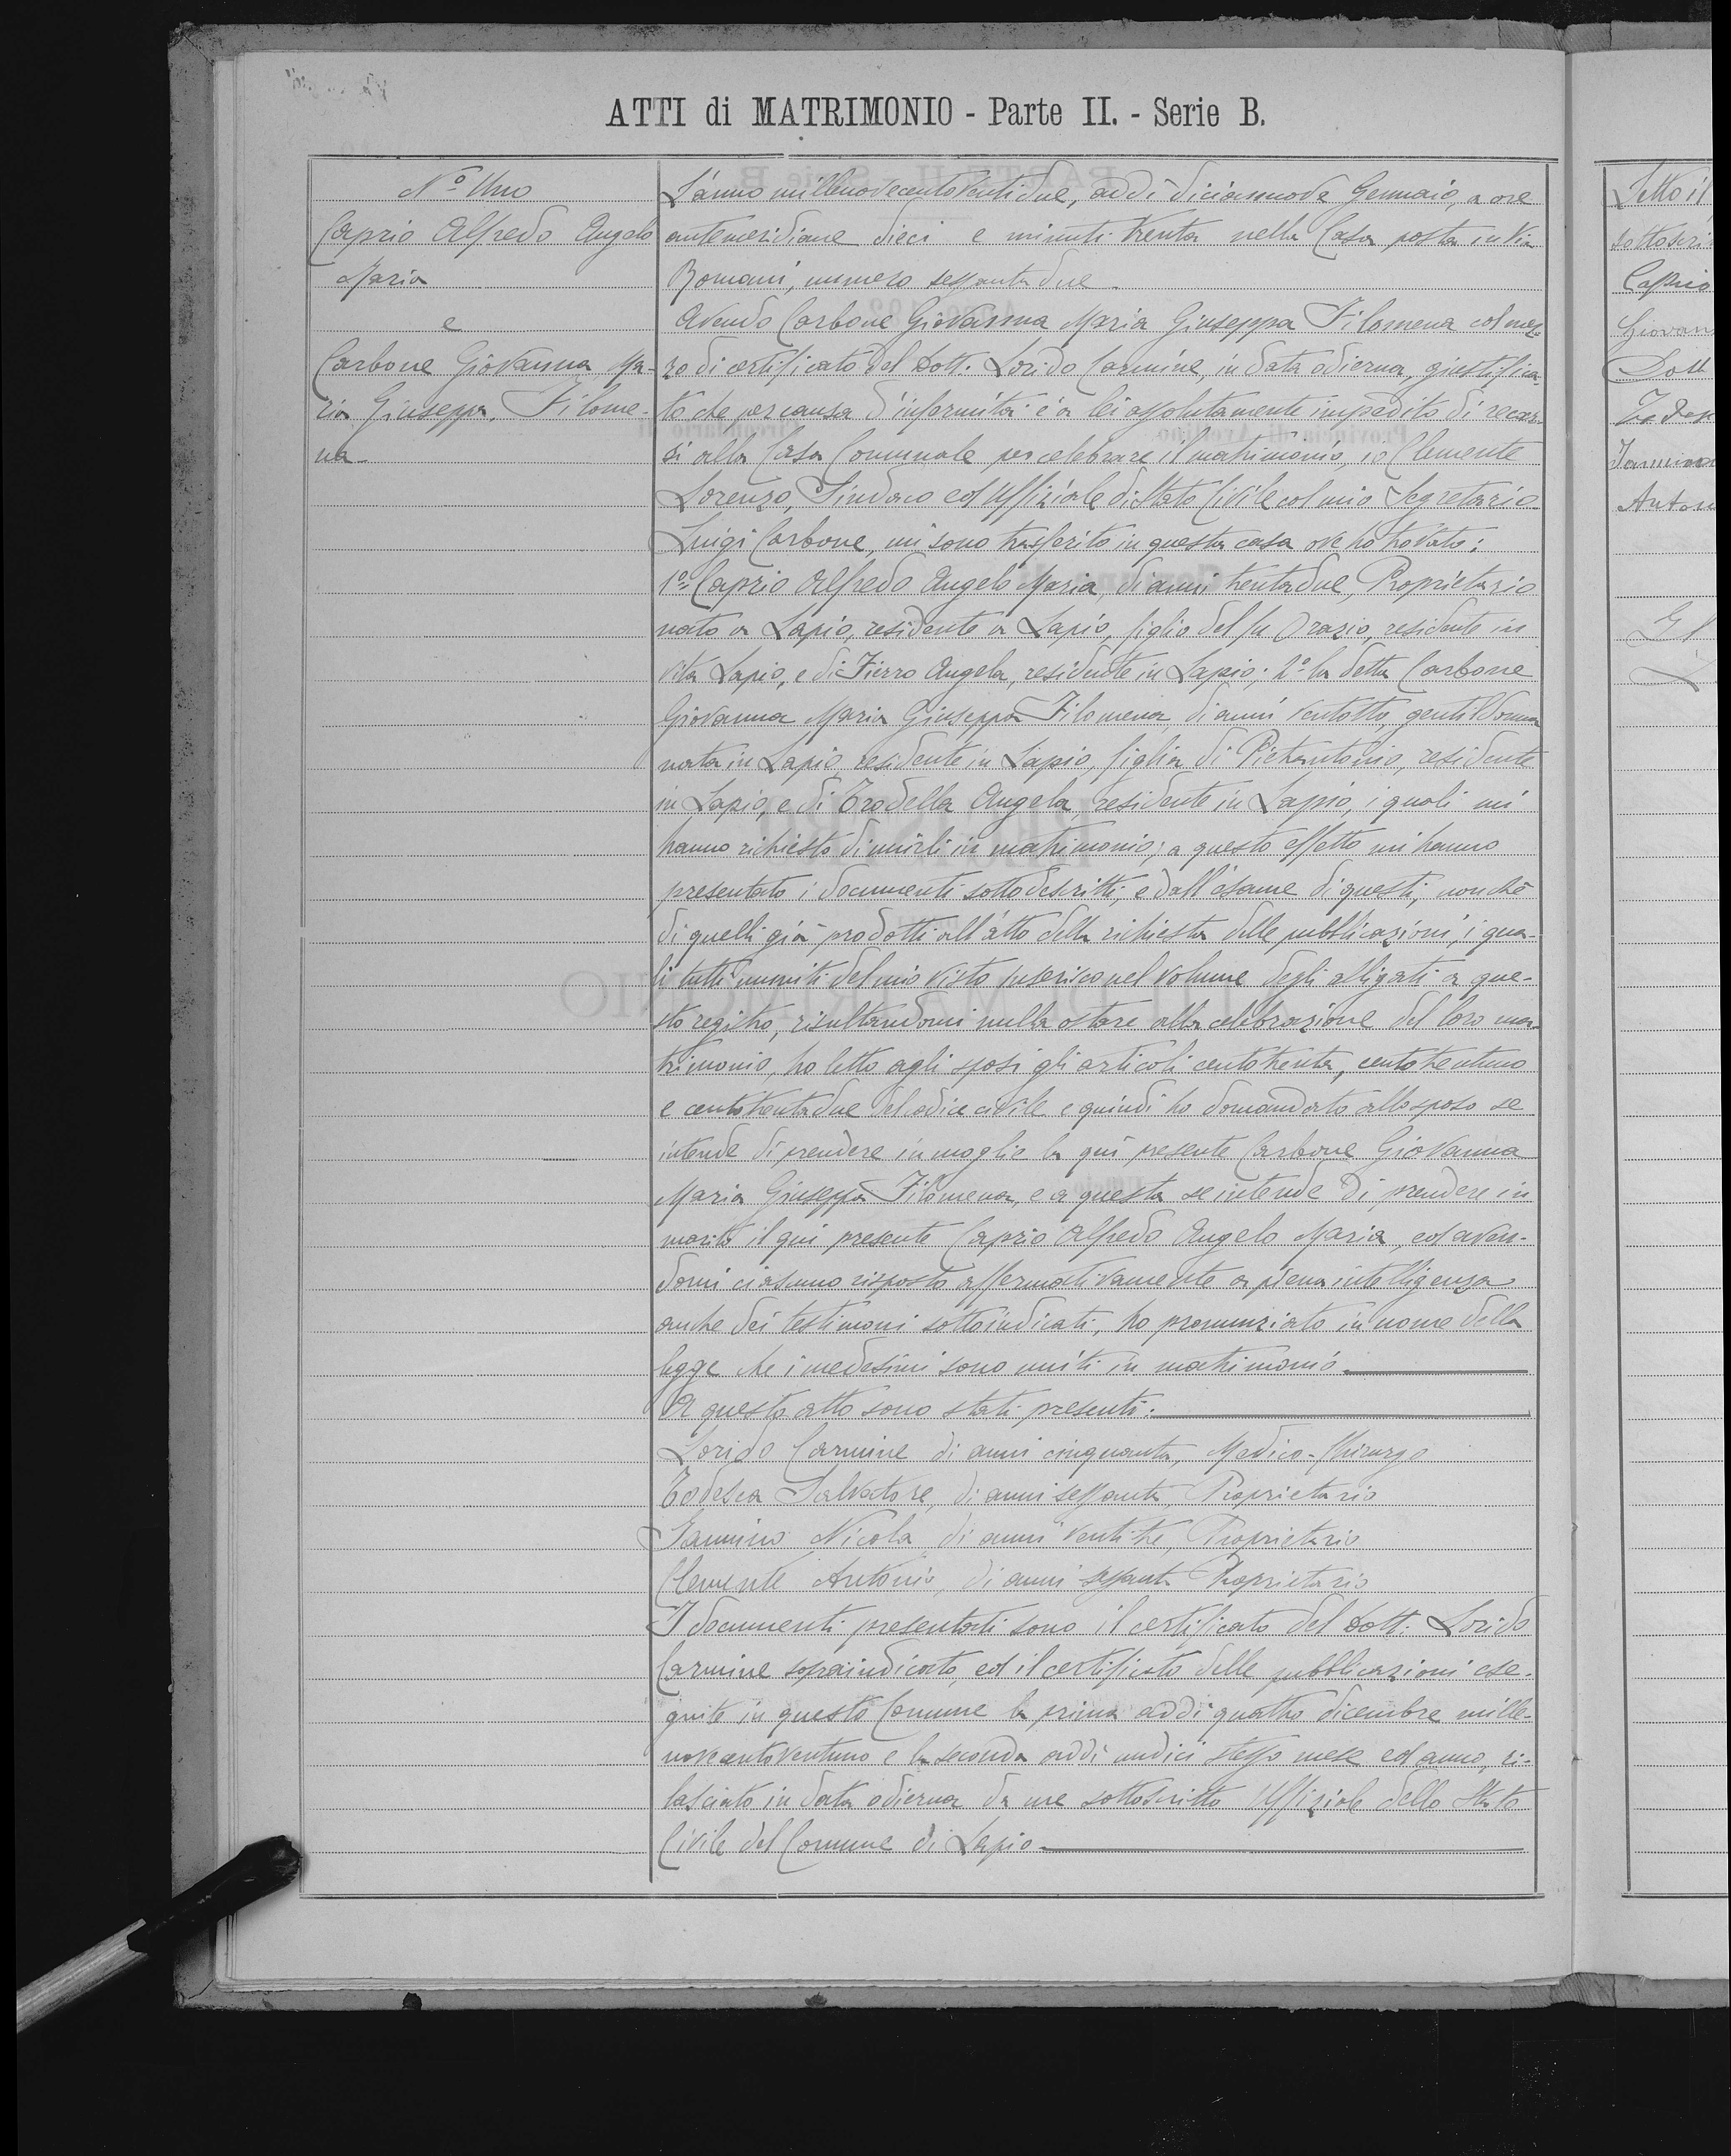 ATTI di MATRIMONIO - Parte II. - Serie B.
Nº Uno
Caprio Alfredo Angelo
Maria
e
Carbone Giovanna Ma-
ria Giuseppa Filome-
na
L'anno millenovecentoventidue, addì diciannove Gennaio, a ore
antemeridiane dieci e minuti trenta nella Casa posta in Via
Romani, numero sessantadue.
Avendo Carbone Giovanna Maria Giuseppa Filomena col mez-
zo di certificato del Dott. Lorido Carmine, in data odierna, giustifica-
to che per causa d'infermità è a lei assolutamente impedito di recar-
si alla Casa Comunale per celebrare il matrimonio, io Clemente
Lorenzo, Sindaco ed Uffiziale di Stato Civile col mio Segretario
Luigi Carbone, mi sono trasferito in questa casa ove ho trovato:
1º Caprio Alfredo Angelo Maria, di anni trentadue, Proprietario
nato a Lapio, residente a Lapio, figlio del fu Orazio, residente in
vita Lapio, e di Fierro Angela, residente in Lapio; 2º la detta Carbone
Giovanna Maria Giuseppa Filomena, di anni ventotto, gentildonna
nata in Lapio, residente in Lapio, figlia di Pietrantonio, residente
in Lapio, e di Trodella Angela, residente in Lapio, i quali mi
hanno richiesto di unirli in matrimonio; a questo effetto mi hanno
presentato i documenti sottodescritti, e dall'esame di questi, nonchè
di quelli già prodotti all'atto della richiesta delle pubblicazioni, i qua-
li tutti muniti del mio visto inserisco nel volume degli alligati a que-
sto registro, risultandomi nulla ostare alla celebrazione del loro ma-
trimonio, ho letto agli sposi gli articoli centotrenta, centotrentuno
e centotrentadue del codice civile e quindi ho domandato allo sposo se
intende di prendere in moglie la quì presente Carbone Giovanna
Maria Giuseppa Filomena, e a questa se intende di prendere in
marito il quì presente Caprio Alfredo Angelo Maria, ed aven-
domi ciascuno risposto affermativamente a piena intelligenza
anche dei testimoni sottoindicati, ho pronunziato in nome della
legge che i medesimi sono uniti in matrimonio.
A questo atto sono stati presenti:
Lorido Carmine di anni cinquanta, Medico-Chirurgo
Todesca Salvatore, di anni sessanta, Proprietario
Iannino Nicola, di anni ventitre, Proprietario
Clemente Antonio, di anni sessanta Proprietario
I documenti presentati sono il certificato del Dott. Lorido
Carmine sopraindicato, ed il certificato delle pubblicazioni ese-
guite in questo Comune la prima addì quattro dicembre mille-
novecentoventuno e la seconda addì undici stesso mese ed anno, ri-
lasciato in data odierna da me sottoscritto Uffiziale dello Stato
Civile del Comune di Lapio.
Letto il
sottoscri
Caprio
Giovan
Dott
Todes
Iannino
Anton